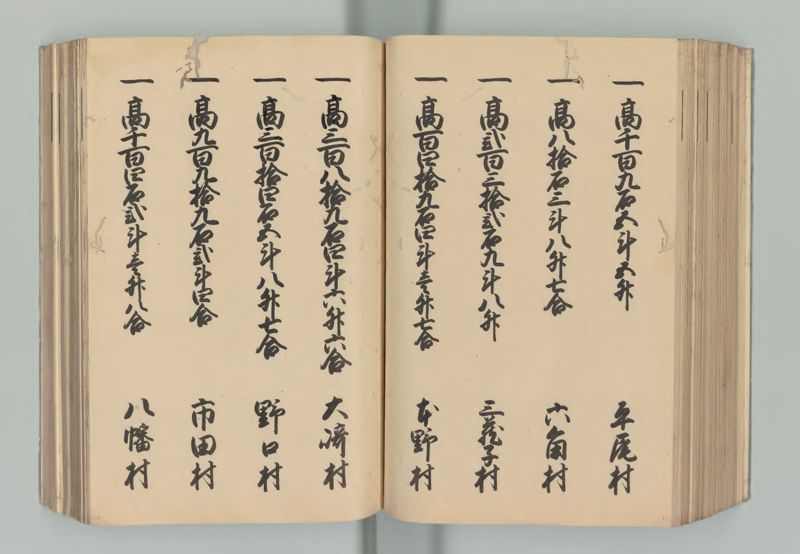 一 高千百九石五斗五升 平尾村
一 高八拾石三斗八升七合 六角村
一 高弐百三拾弐石九斗八升 三蔵子村
一 高百四拾九石四斗壱升七合 本野村
一 高三百八拾九石四斗六升六合 大崎村
一 高三百拾四石五斗八升七合 野口村
一 高九百九拾九石弐斗四合 市田村
一 高千百四石弐斗壱升八合 八幡村